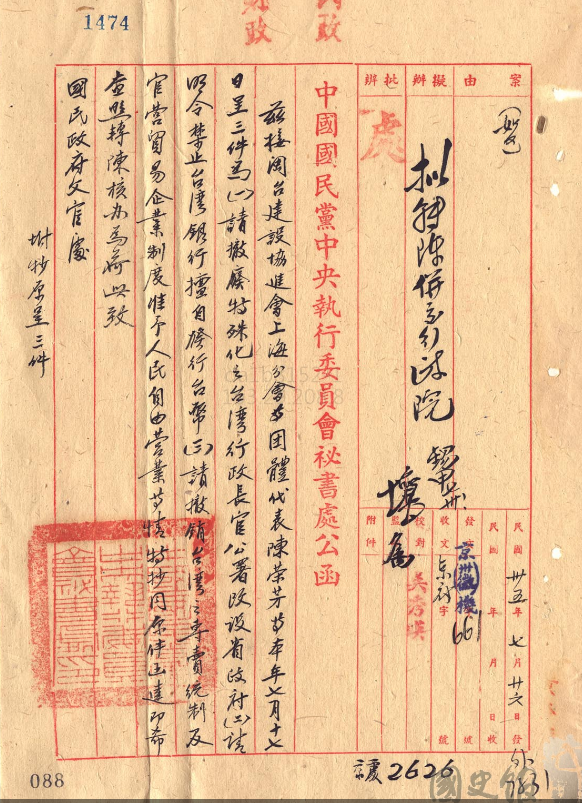 1474
財政
民政
案由
擬辦
批辦
擬轉陳併交行政院
中國國民黨中央執行委員會祕書處公函
民國卅五年七月廿六日發
民國 年 月 日收
發文
京(卅五)機字第661號
收文 字 號
校對
吳秀瑛
監印
附件
茲接閩台建設協進會上海分會等團體代表陳榮芳等本年七月十七
日呈三件為(一)請撤廢特殊化之台灣行政長官公署改設省政府(二)請
明令禁止台灣銀行擅自發行台幣(三)請撤銷台灣之專賣統制及
官營貿易企業制度准予人民自由營業等情特抄同原件函達即希
查照轉陳核辦為荷此致
國民政府文官處
附抄原呈三件
088
京處2626
國史館